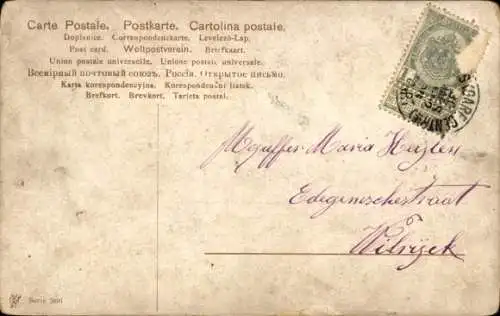 Carte Postale. Postkarte. Cartolina postale.
Dopisnice. Correspondenzkarte. Levelező-Lap.
Post card. Weltpostverein. Brefkaart.
Union postale universelle. Unione postale universale.
Всемірный почтовый союзъ. Россія. Открытое письмо.
Karta korespondencyjna. Korespondenční lístek.
Brefkort. Brevkort. Tarjeta postal.
Mejuffer Maria
Edegemschestraat
Wilrijck
Serie